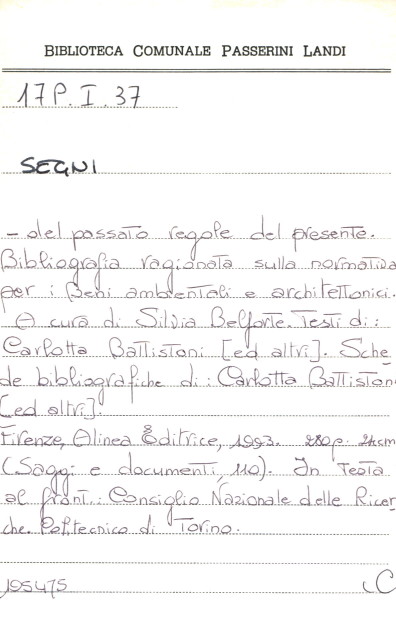 BIBLIOTECA COMUNALE PASSERINI LANDI
17P.I.37
SEGNI
- del passato regole del presente.
Bibliografia ragionata sulla normativa
per i Beni ambientali e architettonici.
A cura di Silvia Belforte. Testi di:
Carlotta Battistoni [ed altri]. Sche
de bibliografiche di: Carlotta Battistoni
[ed altri].
Firenze, Alinea Editrice, 1993. 280p. 24cm
(Saggi e documenti, 110). In testa
al front.: Consiglio Nazionale delle Ricer
che Politecnico di Torino.
195475 C